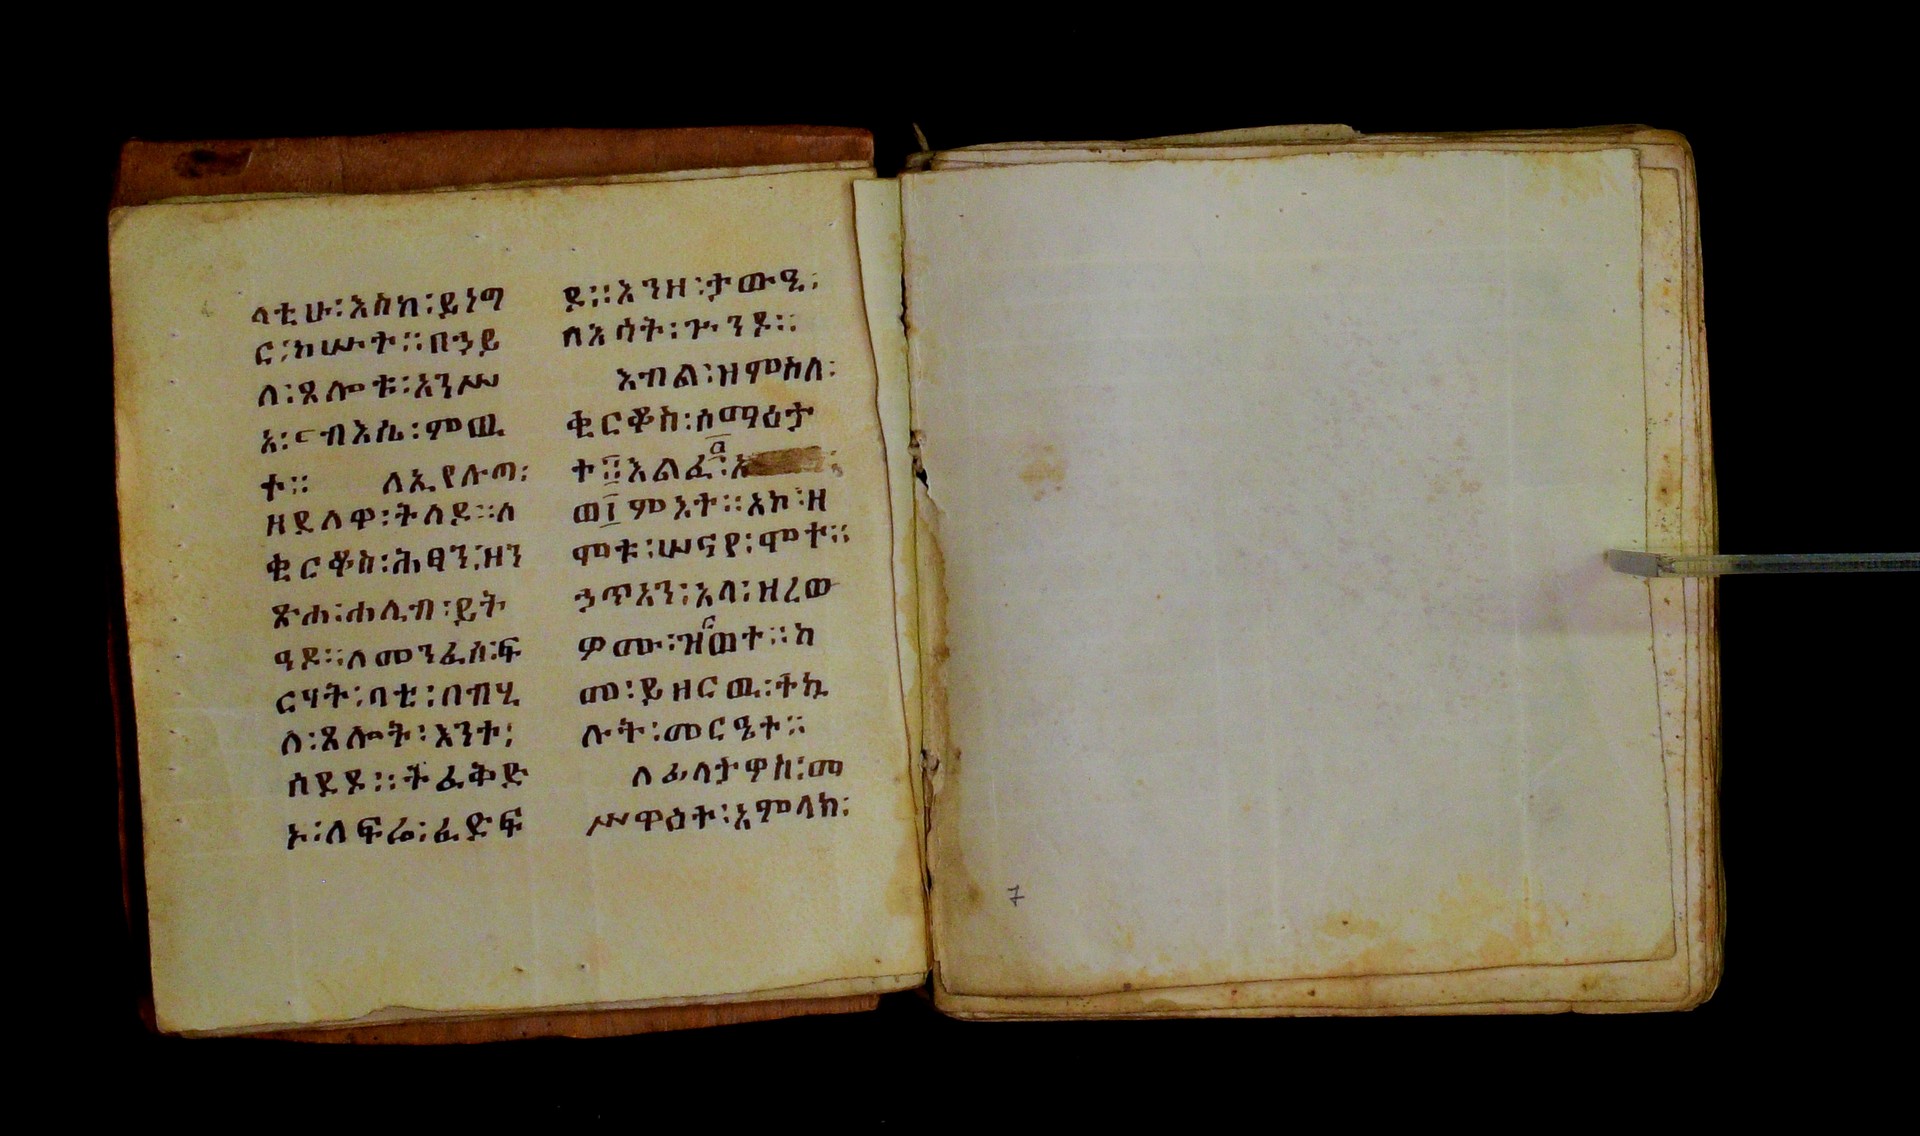 ላቲሁ፡እስከ፡ይነግ
ር፡ክሡተ፡፡በኃይ
ለ፡ጸሎቱ፡አንሥ
አ፡ርብእሴ፡ምዉ
ተ፡፡ ለኢየሉጣ፡
ዘይለዋ፡ትለዶ፡፡ለ
ቂርቆስ፡ሕፃን፡ዘን
ጽሐ፡ሐሊብ፡ይት
ዓዶ፡፡ለመንፈስ፡ፍ
ርሃት፡ባቲ፡በብሂ
ለ፡ጸሎት፡እንተ፡
ሰደዶ፡፡ትፈቅድ
ኑ፡ለፍሬ፡ፈድፍ
ዶ፡፡እንዘ፡ታውዒ፡
ለእሳት፡ጕንዶ፡፡
እብል፡ዝምስለ፡
ቂርቆስ፡ሰማዕታ
ተ፡፡እልፈ፡
ወ፲ምእት፡፡አኮ፡ዘ
ሞቱ፡ሠናየ፡ሞተ፡፡
ኃጥአን፡አላ፡ዘረወ
ዎሙ፡ዝርወተ፡፡ከ
መ፡ይዘርዉ፡ተኲ
ሉት፡መርዔተ፡፡
ለፊላታዎስ፡መ
ሥዋዕት፡አምላክ፡
7